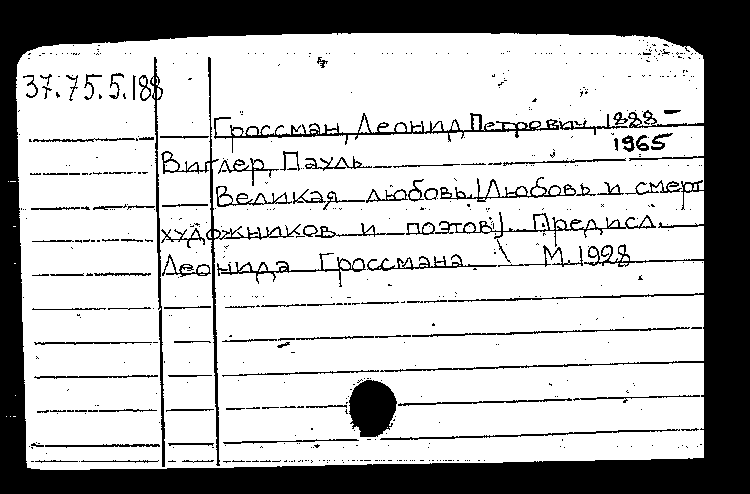 37.75.5.188
Гроссман, Леонид Петрович, 1888-
1965
Виглер, Пауль
Великая любовь. [Любовь и смерт
художников и поэтов]. Предисл.
Леонида Гроссмана. М. 1928